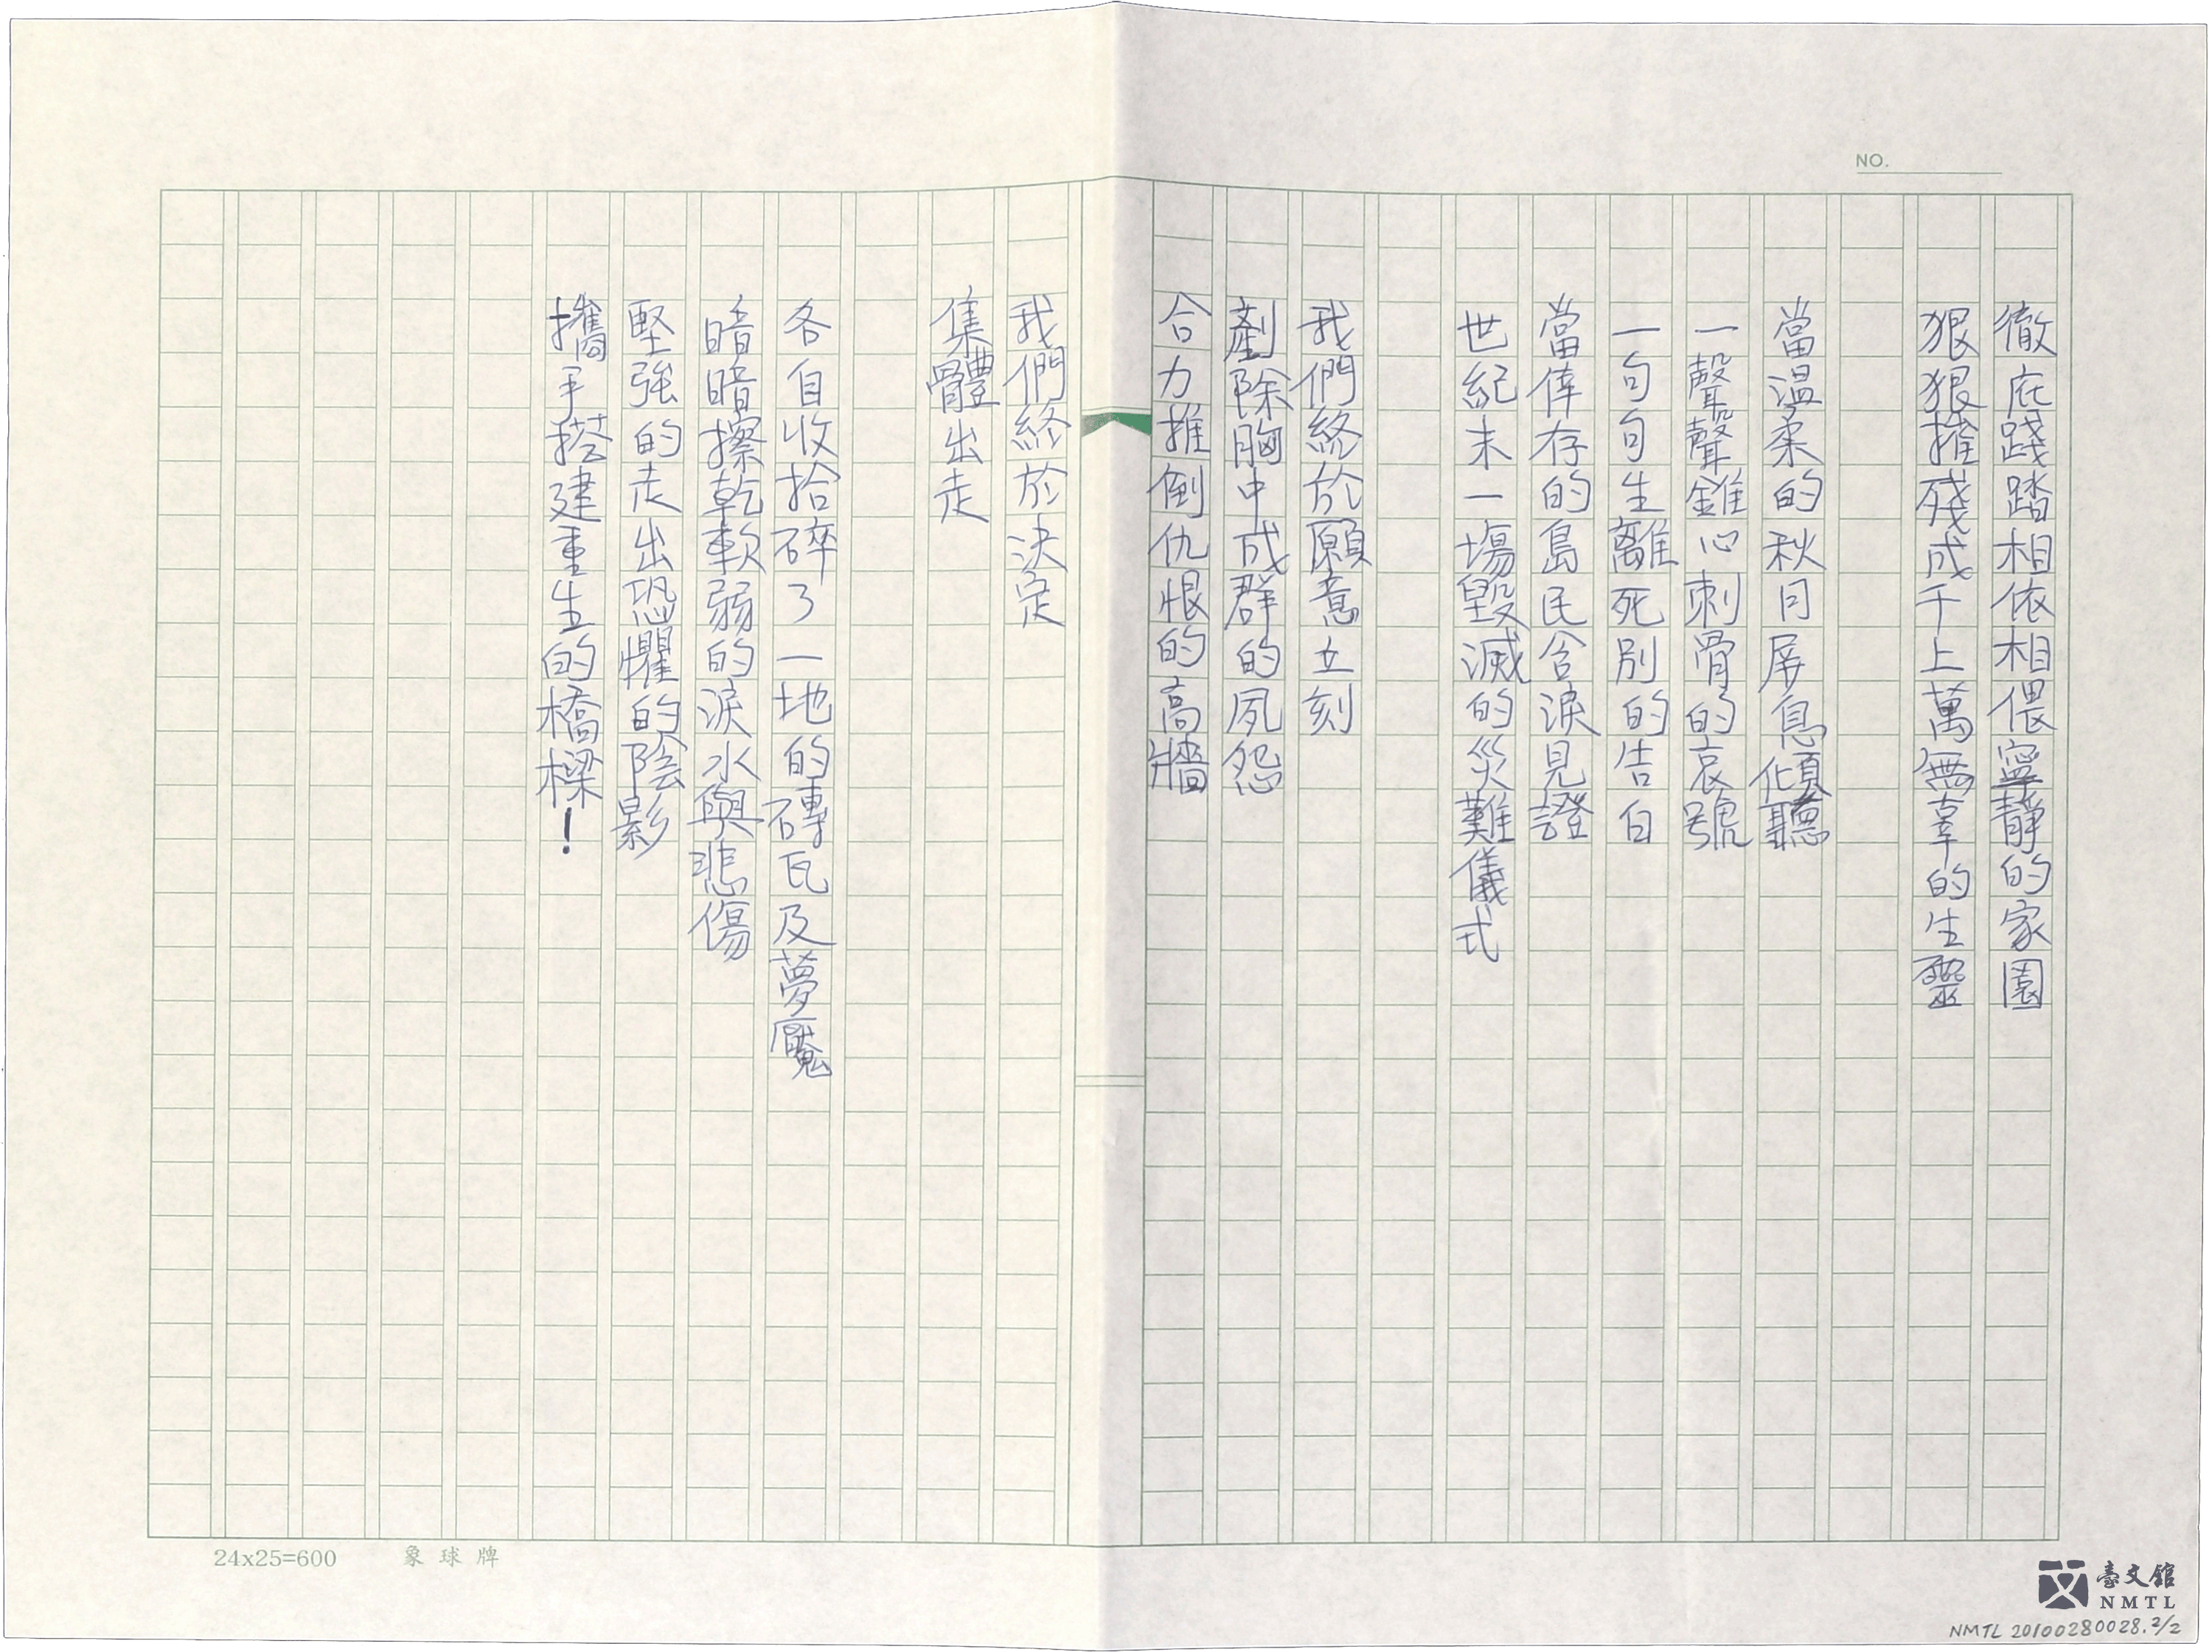 NO.
徹底踐踏相依相偎寧靜的家園
狠狠摧殘成千上萬無辜的生靈
當溫柔的秋月屏息傾聽
一聲聲錐心刺骨的哀號
一句句生離死別的告白
當倖存的島民含淚見證
世紀末一場毀滅的災難儀式
我們終於願意立刻
剷除胸中成群的夙怨
合力推倒仇恨的高牆
我們終於決定
集體出走
各自收拾碎了一地的磚瓦及夢魘
暗暗擦乾軟弱的淚水與悲傷
堅強的走出恐懼的陰影
攜手搭建重生的橋樑!
24x25=600 象球牌
臺文館
NMTL
NMTL 20100280028.2/2